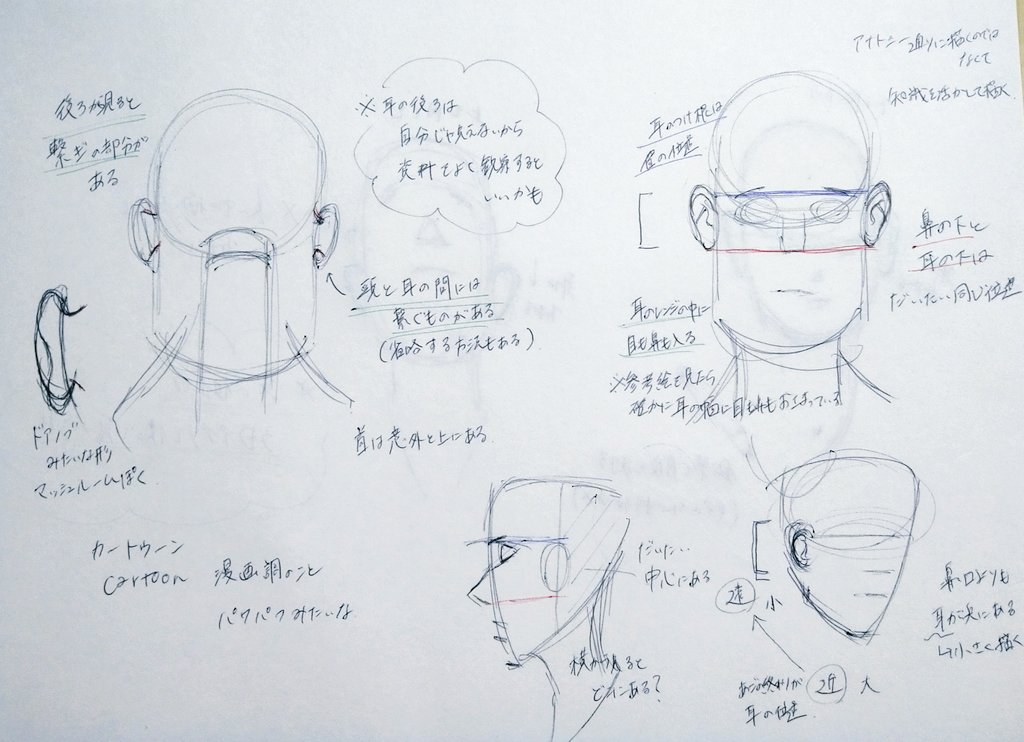 後ろから見ると
繋ぎの部分が
ある
※耳の後ろは
自分じゃ見えないから
資料をよく観察すると
いいかも
頭と耳の間には
繋ぐものがある
(省略する方法もある)
首は意外と上にある
ドアノブ
みたいな形
マッシュルームぽく
カートゥーン
cartoon 漫画調のこと
パワパフみたいな
アナトミー通りに描くのでは
なくて
知識を活かして描く
耳のつけ根は
眉の位置
鼻の下と
耳の下は
だいたい同じ位置
耳のレンジの中に
目も鼻も入る
※参考絵を見たら
確かに耳の幅に目も鼻もおさまっている
だいたい
中心にある
横から見ると
どこにある?
遠 小
近 大
あごの終わりが
耳の位置
鼻、口よりも
耳が
小さく描く